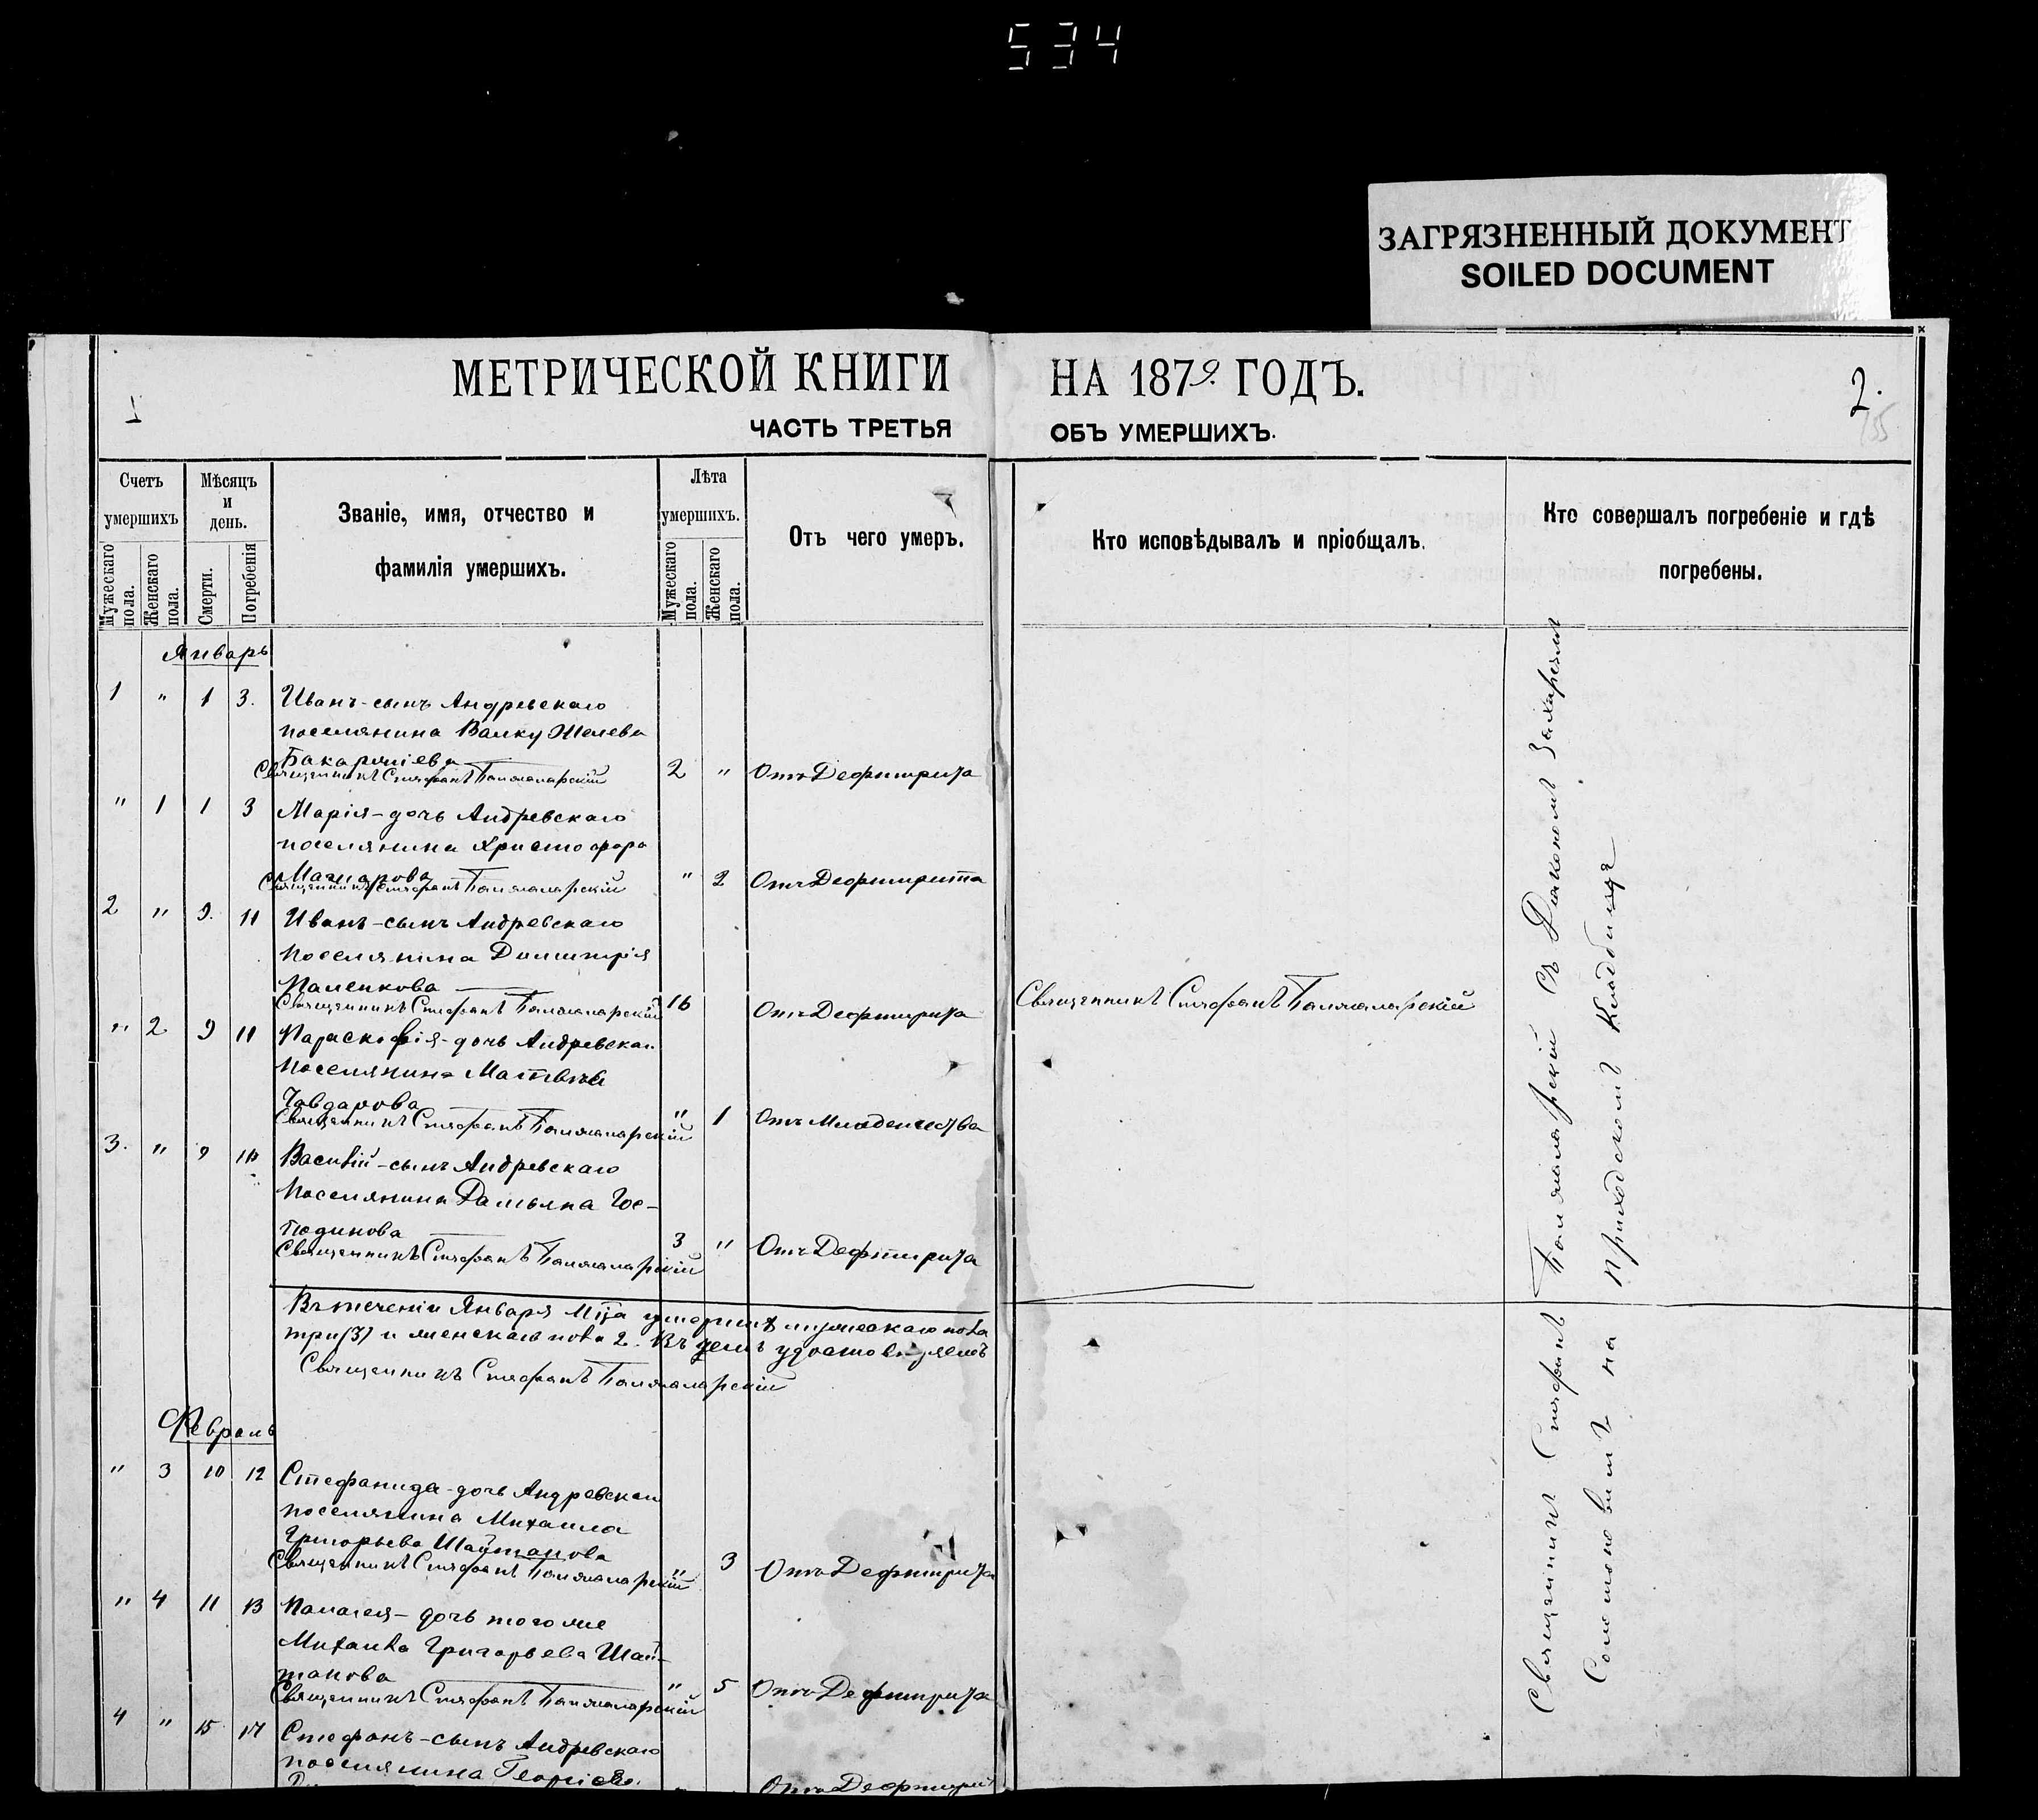 534
ЗАГРЯЗНЕННЫЙ ДОКУМЕНТ
SOILED DOCUMENT
МЕТРИЧЕСКОЙ КНИГИ НА 1879. ГОДЪ.
1
2.
155
ЧАСТЬ ТРЕТЬЯ ОБЪ УМЕРШИХЪ.
Счетъ умершихъ
Мужескаго пола.
Женскаго пола.
Мѣсяцъ и день.
Смерти.
Погребенія
Званіе, имя, отчество и
фамилія умершихъ.
Лѣта умершихъ.
Мужескаго пола.
Женскаго пола.
Отъ чего умеръ.
Кто исповѣдывалъ и пріобщалъ.
Кто совершалъ погребеніе и гдѣ
погребены.
Январь
1 " 1 3. Иванъ-сынъ Андревскаго
поселянина Валку Желева
2 " Отъ Дефтирита
Священникъ Стефанъ
" 1 1 3 Марія-дочь Андревскаго
поселянина Христофора
" 2 Отъ Дефтирита
Священникъ Стефанъ
2 " 9. 11 Иванъ-сынъ Андревскаго
поселянина Димитрія
Паленкова
16 Отъ Дефтирита
Священникъ Стефанъ
Священникъ Стефанъ
" 2 9 11 Параскофія-дочь Андревскаг.
поселянина Матвѣя
Чавдарова
" 1 Отъ Младенчества
Священникъ Стефанъ
3. " 9 Василій-сынъ Андревскаго
поселянина Дамьяна Гос-
подинова
3 " Отъ Дефтирита
Священникъ Стефанъ
Въ теченіи Января М-ца умершихъ мужескаго пола
три (3) и женскаго пола 2. Въ чемъ удостовѣряемъ
Священникъ Стефанъ
Февраль
" 3 10 12 Стефанида-дочь Андревскаг
поселянина Михаила
Григорьева Шайтанова
" 3 Отъ Дефтирита
Священникъ Стефанъ
" 4 11 13 Палагея-дочь того же
Михаила Григорьева Шай-
танова
" 5 Отъ Дефтирита
Священникъ Стефанъ
4 " 15 17 Стефанъ-сынъ Андревскаго
поселянина Георгіева
Отъ Дефтирит
Священникъ Стефанъ съ Діакономъ
на приходскомъ кладбищѣ